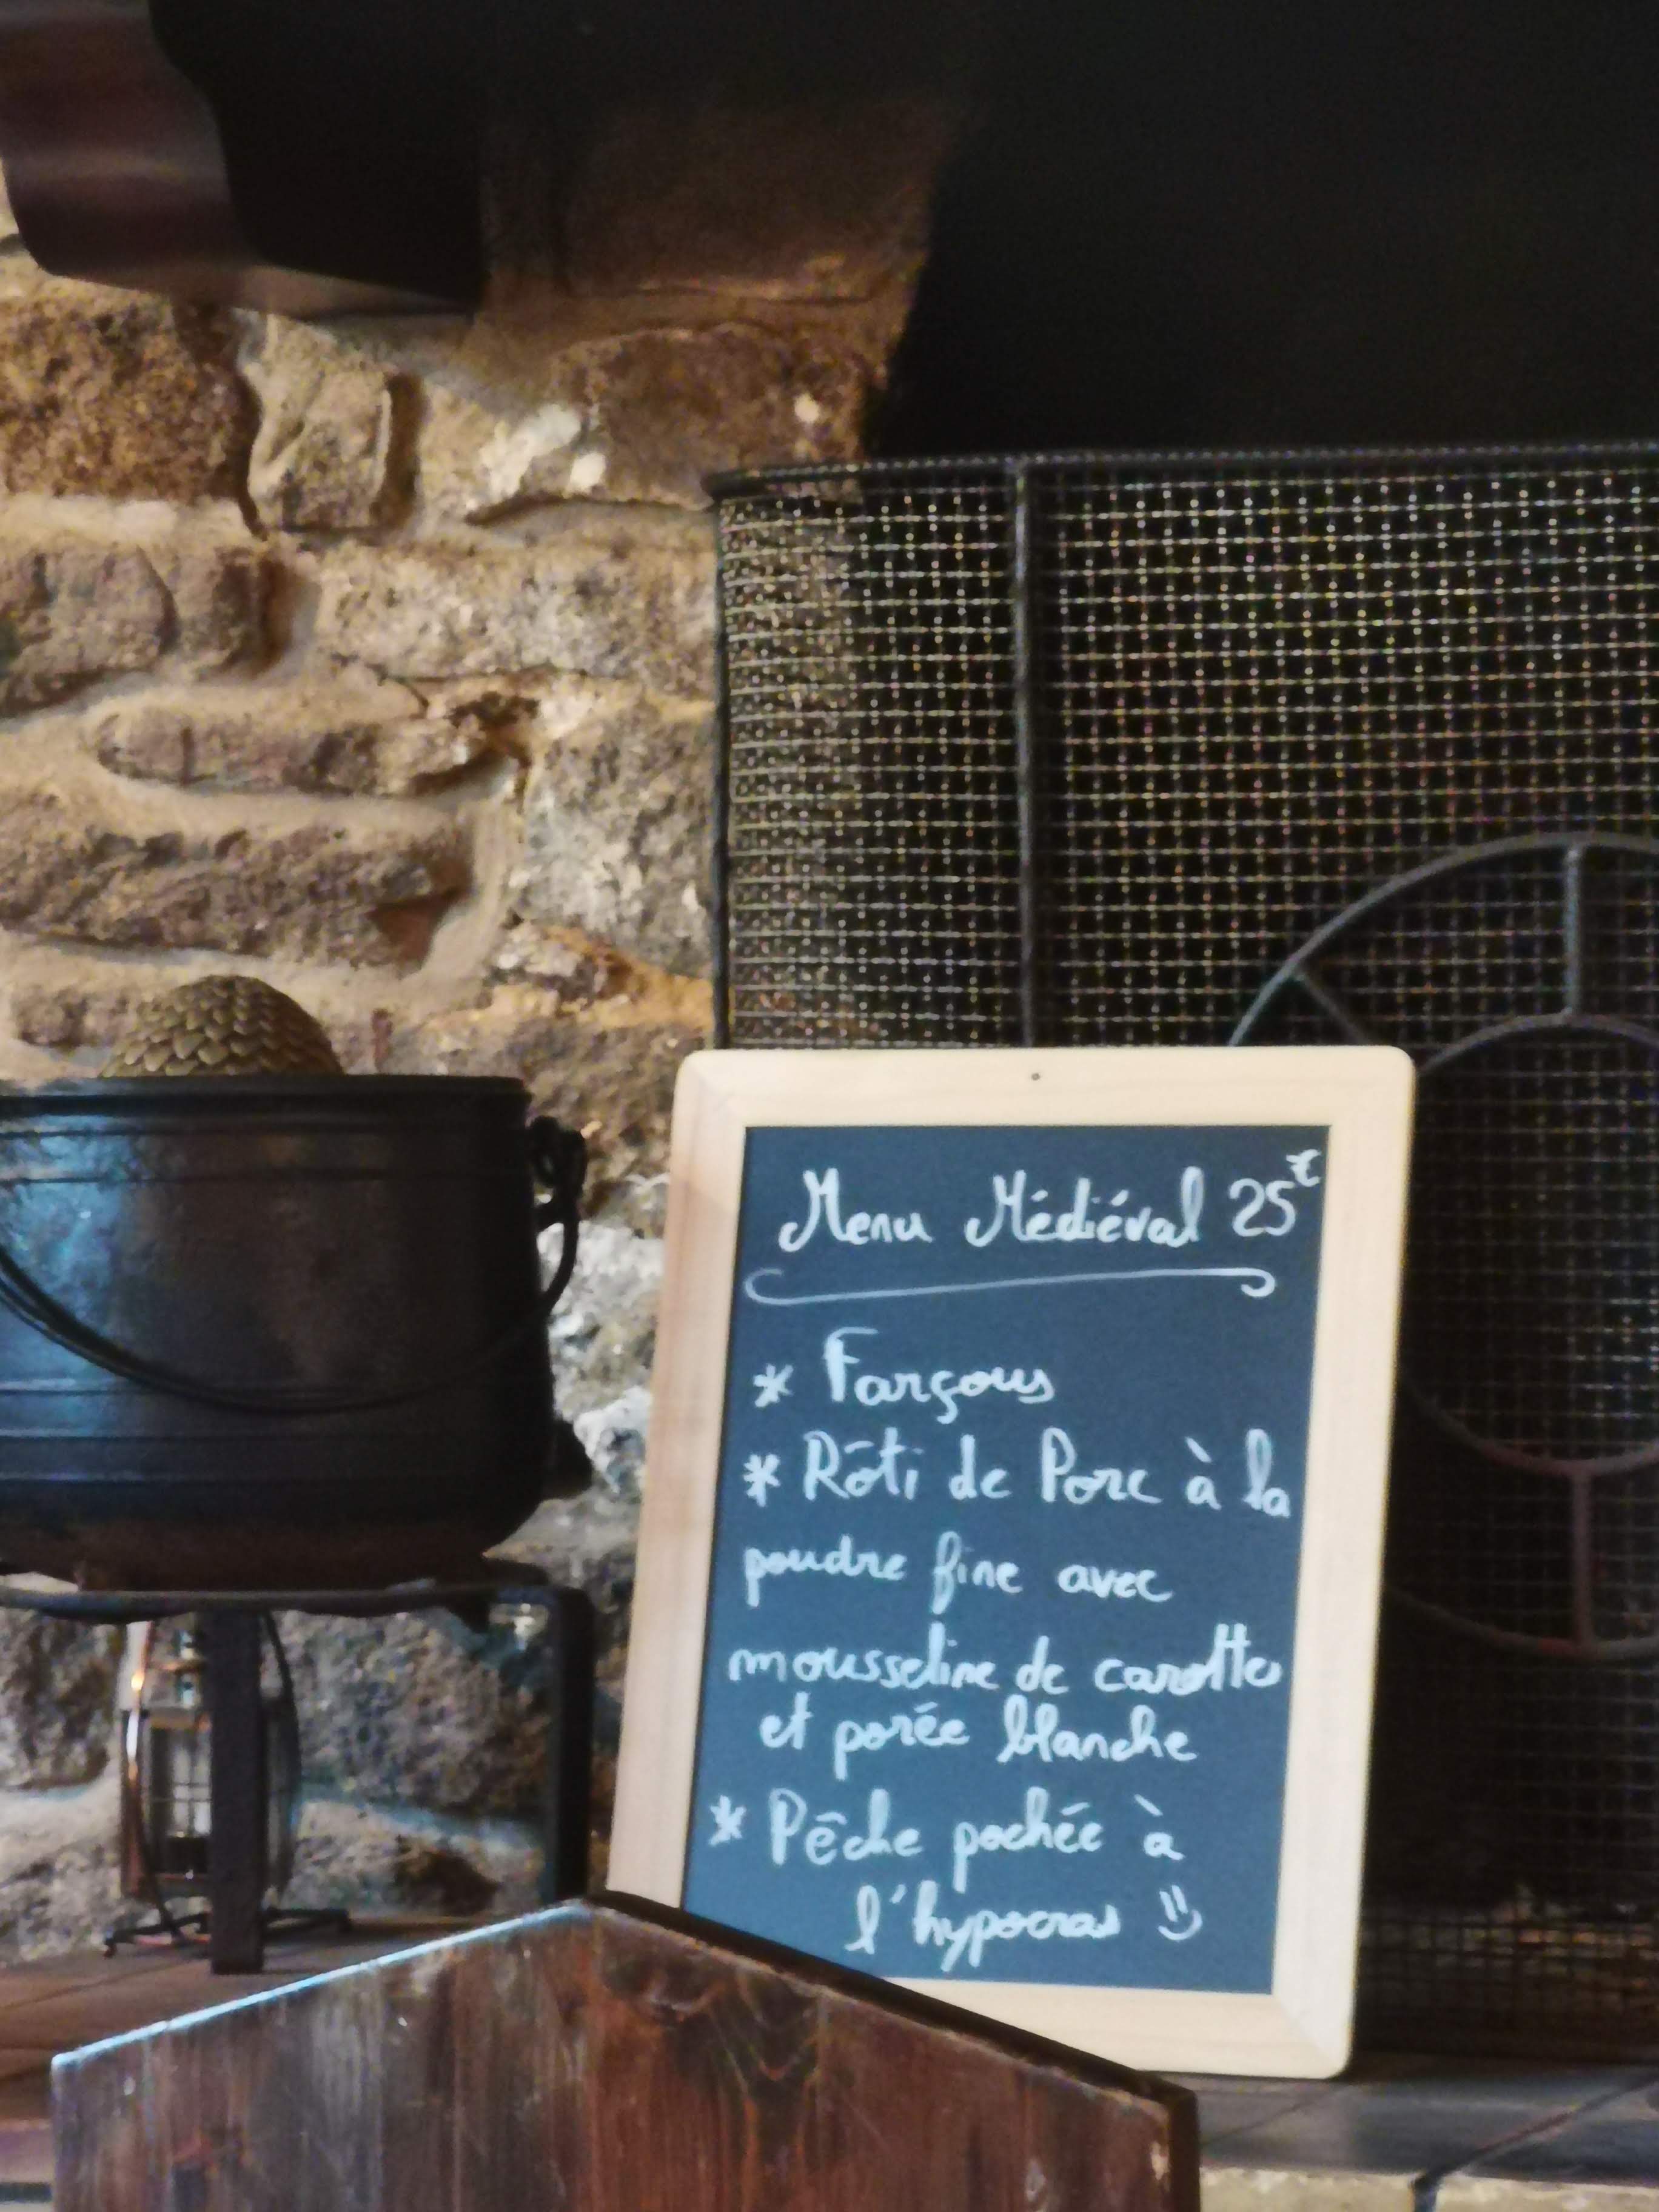 Menu Médiéval 25€
* Farçous
* Rôti de Porc à la
poudre fine avec
mousseline de carottes
et porée blanche
* Pêche pochée à
l'hypocras